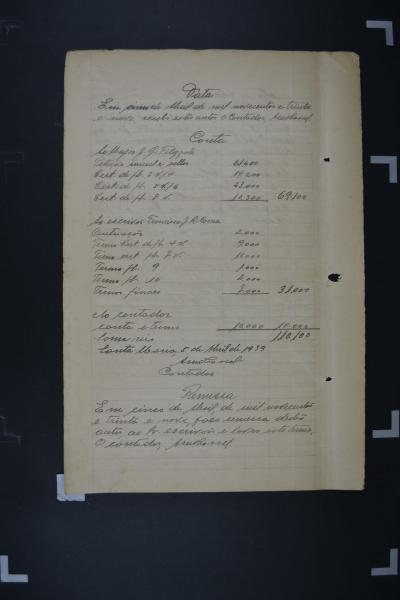 Data
Em cinco de Abril de mil novecentos e trinta
e nove, recebi estes autos. O Contador,
Conta
Ao Major J. G.
Petição inicial e sellos 21,400
Cert. de fl. 14,200
Cert. de fl. 5 e 6
Cert. de fl. 8 v. 12,300 69,100
Ao escrivão Francisco J. R. Correa
Autuação 2,000
Termo Cert. de fl. 4 v. 9,000
Termo cert. fl. 7 v.
Termo fl. 9
Termo fl. 10 2,000
Termos finaes 31,000
Ao contador
conta e termo 10,000 10,000
Soma reis 110,100
Santa Maria, 5 de Abril de 1939
Contador
Remessa
Em cinco de Abril de mil novecentos
e trinta e nove, faço remessa destes
autos ao Sr. escrivão e lavro este termo.
O contador,